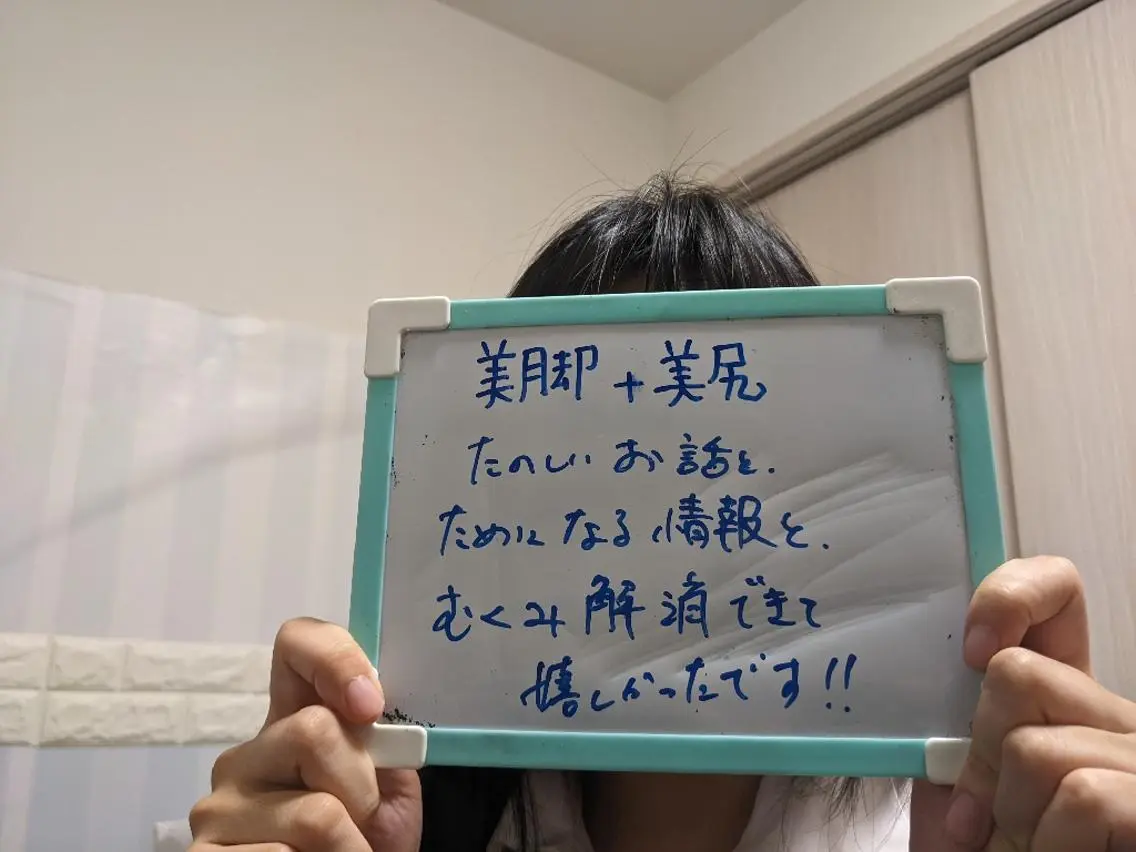 美脚+美尻
たのしいお話と、
ためになる情報と、
むくみ解消できて
嬉しかったです!!